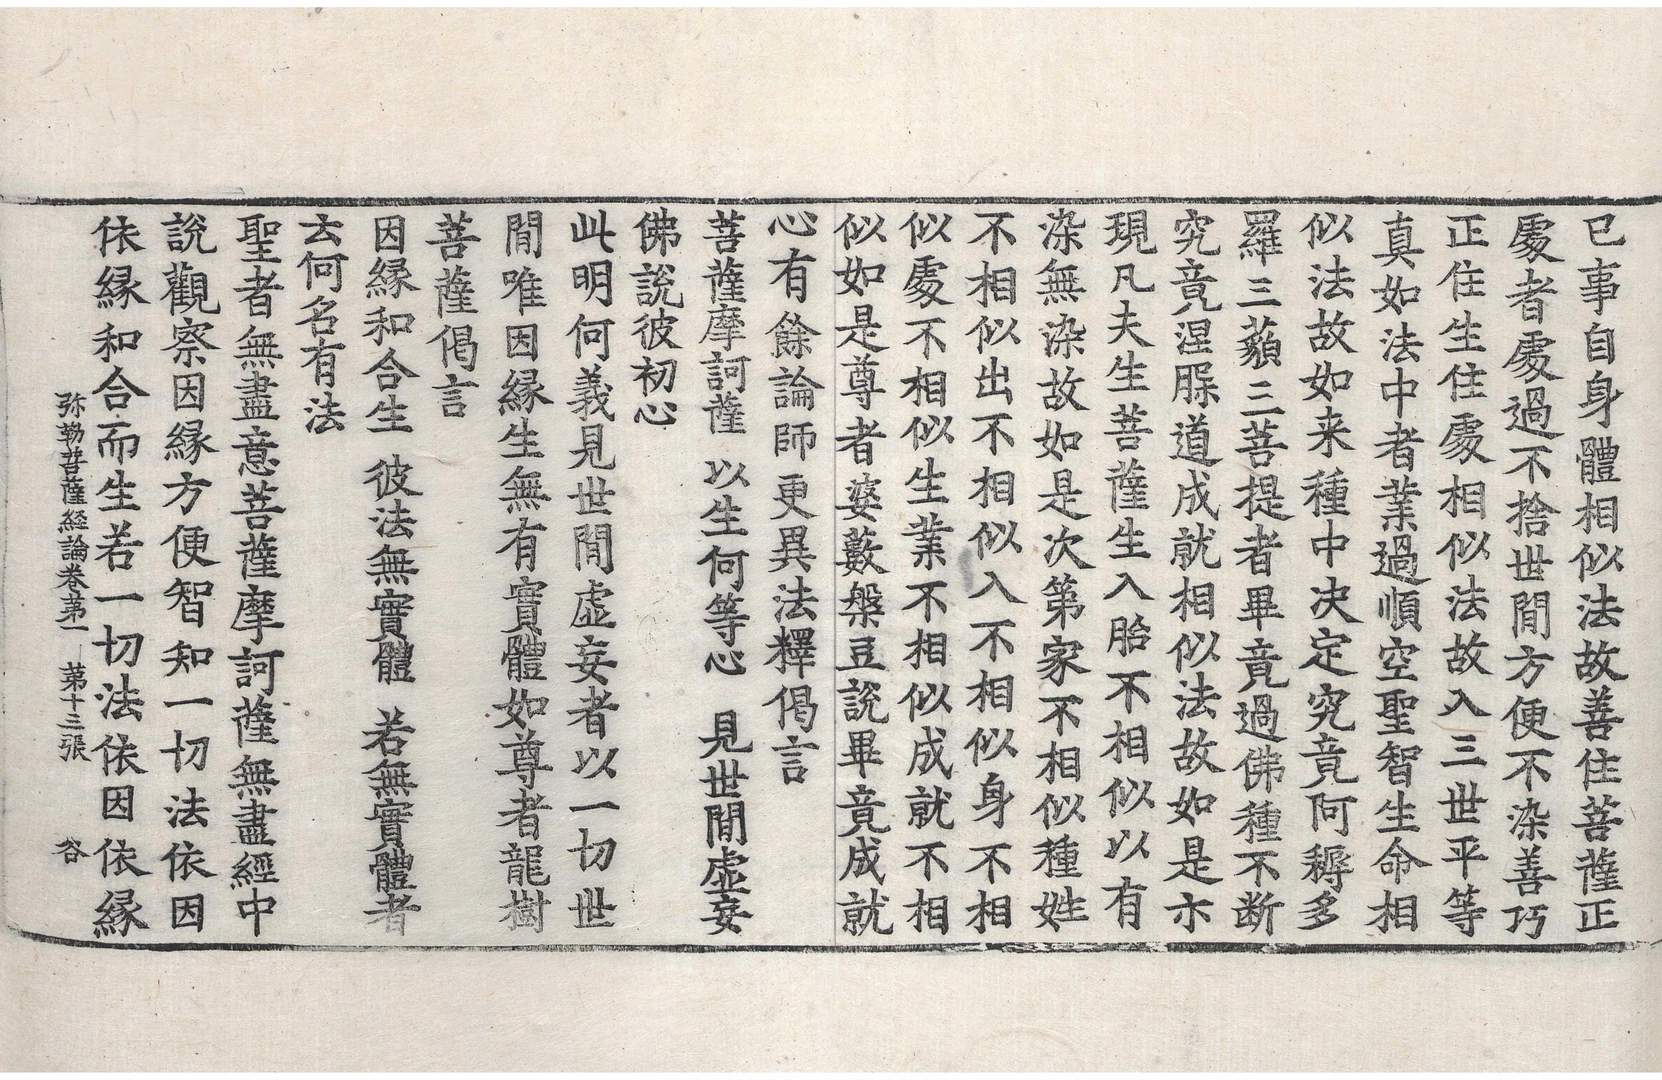 已事自身體相似法故善住菩薩正
處者處過不捨世間方便不染善巧
正住生住處相似法故入三世平等
真如法中者業過順空聖智生命相
似法故如来種中决定究竟阿耨多
羅三藐三菩提者畢竟過佛種不断
究竟涅脲道成就相似法故如是亦
現凡夫生菩薩生入胎不相似以有
染無染故如是次第家不相似種姓
不相似出不相似入不相似身不相
似處不相似生業不相似成就不相
似如是尊者婆藪槃豆說畢竟成就
心有餘論師更異法釋偈言
菩薩摩訶薩　以生何等心　見世間虛妄
佛說彼初心
此明何義見世間虛妄者以一切世
間唯因縁生無有實體如尊者龍樹
菩薩偈言
因縁和合生　彼法無實體　若無實體者
去何名有法
聖者無盡意菩薩摩訶薩無盡經中
說觀察因縁方便智知一切法依因
依縁和合而生若一切法依因依縁
弥勒菩薩経論卷第一　第十三張　谷